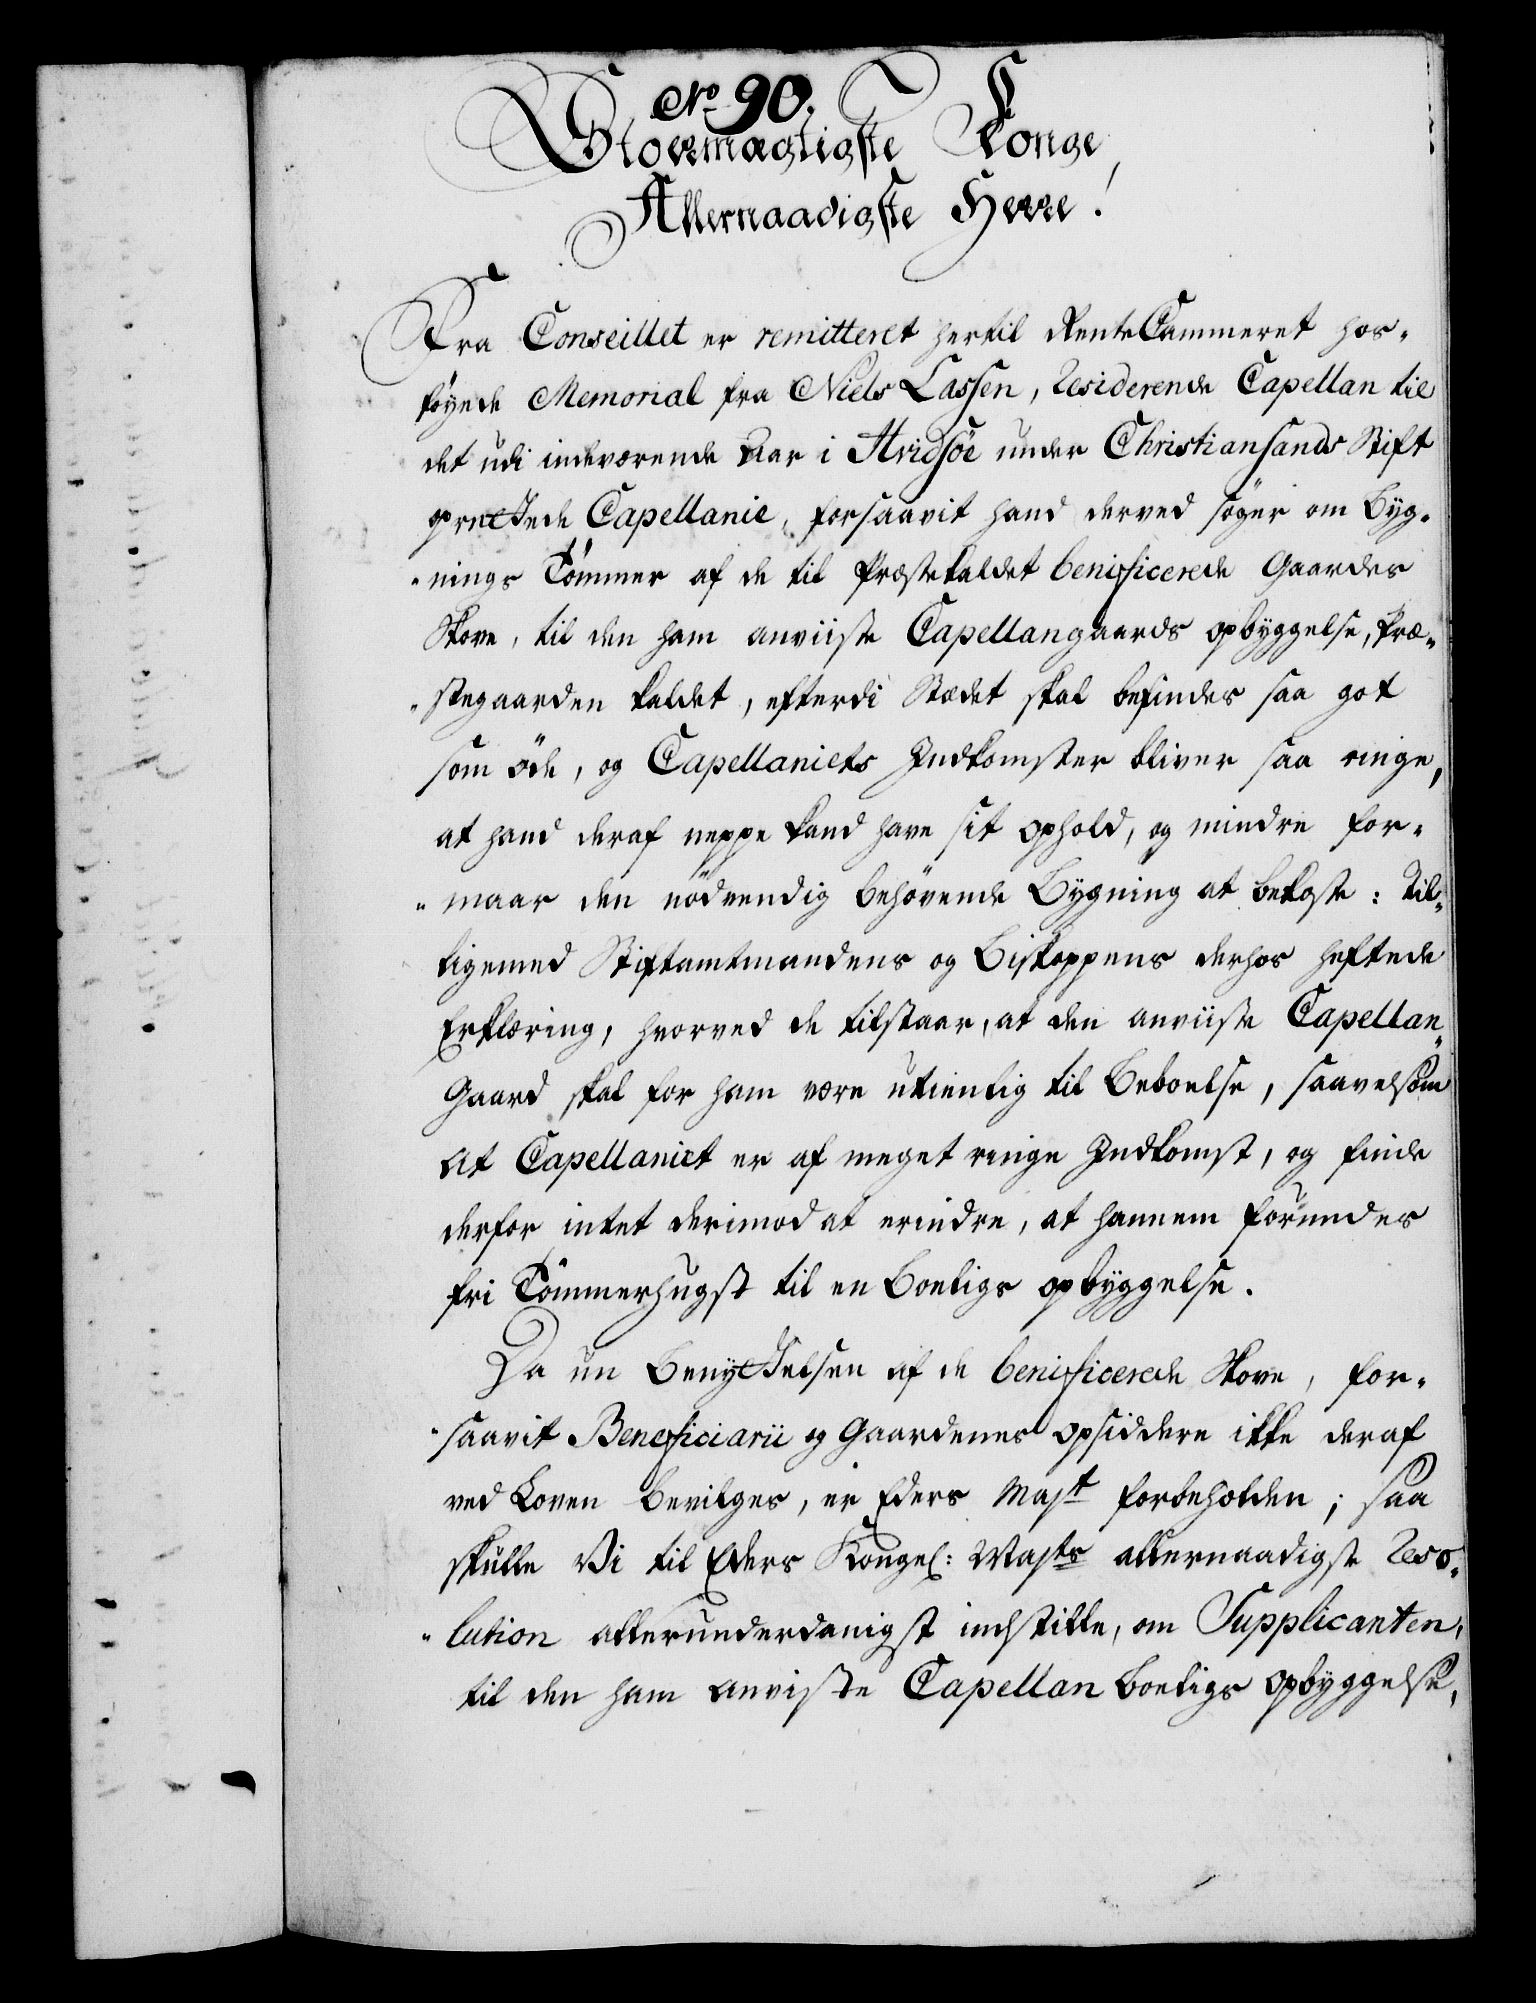 No 90.
Stormægtigste Konge,
Allernaadigste Herre!
Fra Conseillet er remitteret hertil RenteCammeret hos-
føyede Memorial fra Niels Lassen, Residerende Capellan til
det udi indeværende Aar i Hvidsöe under Christiansands Stift
oprettede Capellanie, forsaavit hand derved søger om Byg-
nings Tømmer af de til Præstekaldet benificerede Gaardes
Skove, til den ham anviiste Capellangaards opbyggelse, Præ-
stegaarden kaldet, efterdi Stædet skal befindes saa got
som öde, og Capellaniets Indkomster bliver saa ringe,
at hand deraf neppe kand have sit ophold, og mindre for-
maar den nödvendig behövende Bygning at bekoste: Til-
ligemed Stiftamtmandens og Biskoppens derhos heftede
Erklæring, hvorved de tilstaar, at den anviiste Capellan-
Gaard skal for ham være utienlig til Beboelse, saavelsom
at Capellaniet er af meget ringe Indkomst, og finde
derfor intet derimod at erindre, at hannem forundes
fri Tömmerhugst til en Boeligs opbyggelse.
Da nu Benyttelsen af de benificerede Skove, for-
saavit Beneficiarii og Gaardenes opsiddere ikke deraf
ved Loven bevilges, er Eders Majt forbeholden; saa
skulle Vi til Eders Kongel: Majts allernaadigste Reso-
lution allerunderdanigst indstille, om Supplicanten,
til den ham anviste Capellan Boeligs Opbyggelse,